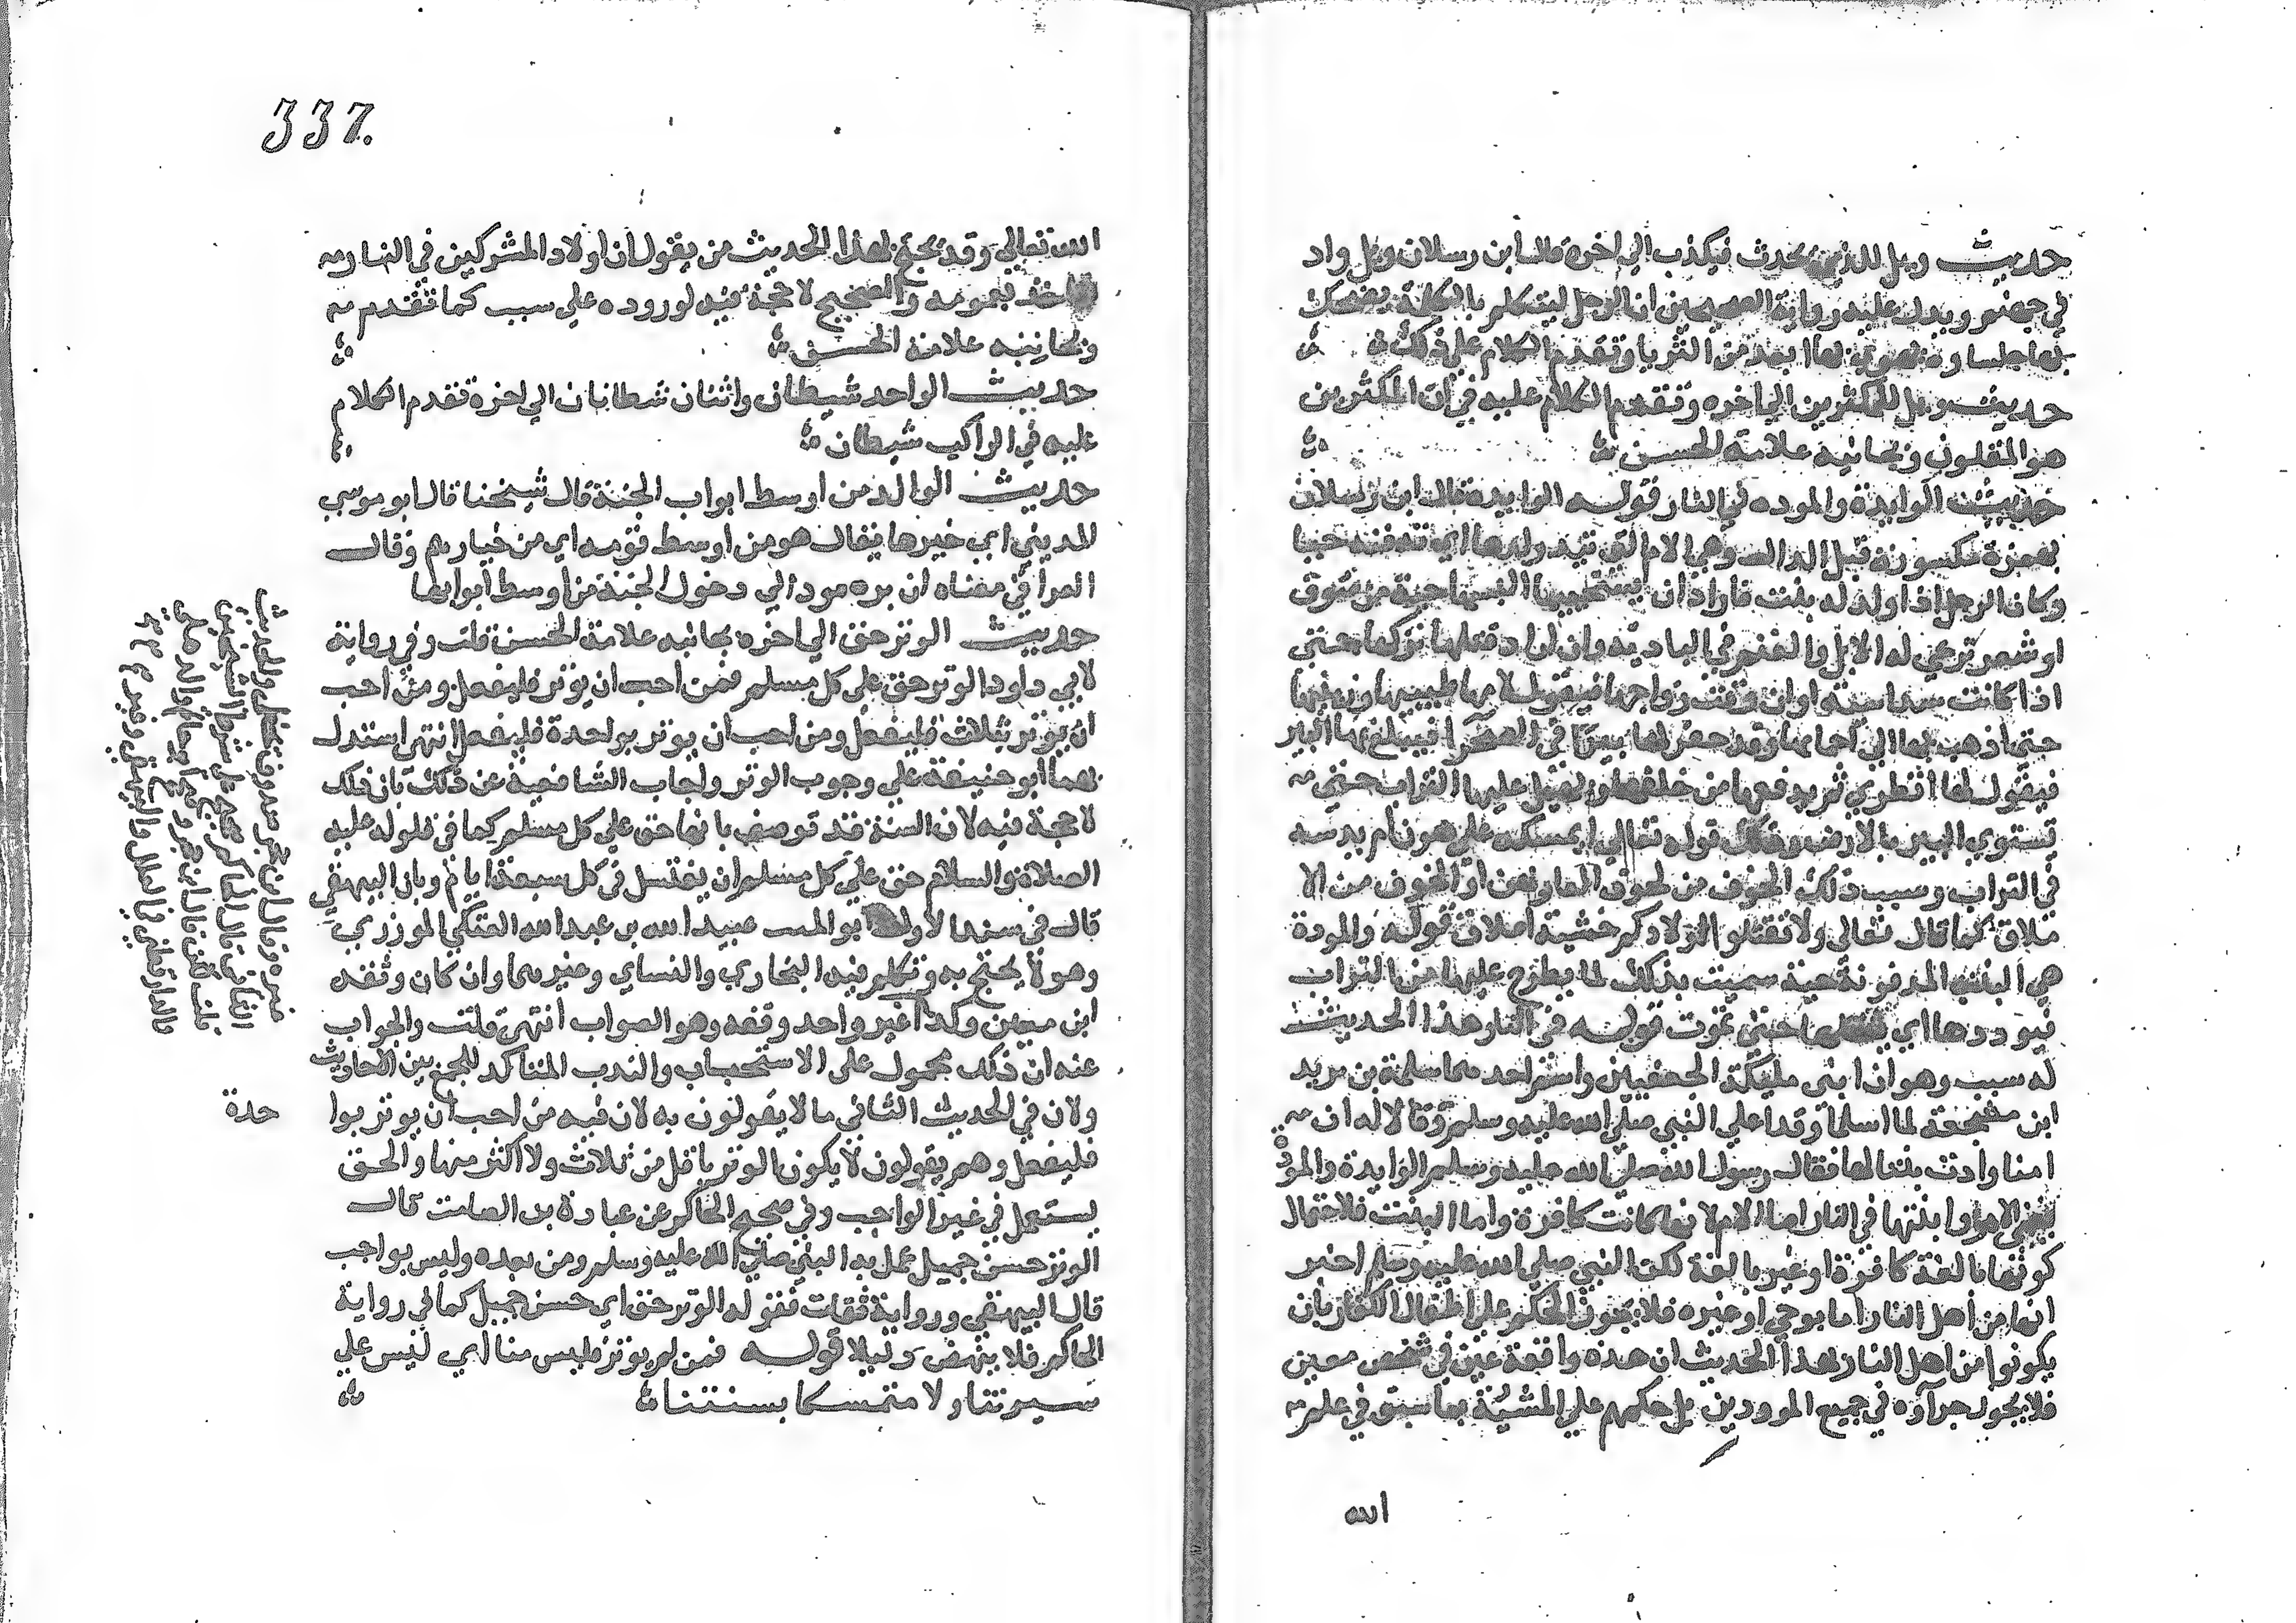 حديث ويل للذي يحدث فيكذب الي اخره قال ابن رسلان ويل واد
في جهنم ويدل عليه رواية الصحيحين ان الرجل ليتكلم بالكلمة يضحك
بها جلساوه يهوي بها ابعد من الثريا وتقدم الكلام علي ذلك
حديث ويل للمكثرين الي اخره وتقدم الكلام عليه في ان المكثرين
هم المقلون وبجانبه علامة الحسن
حديث الوايدة والموده في النار قوله الوايدة قال ابن رسلان
بهمزة مكسورة قبل الدال وهي الام التي تيد ولدها اي تدفنه حيا
وكان الرجل اذا ولد له بنت فاراد ان يستحييها البسها جبة من صوف
او شعر ترعي له الابل والغنم في البادية وان اراد قتلها تركها حتي
اذا كانت سداسية او ان وقت زواجها فيقول لامها طيبيها وزينيها
حتي اذهب بها الي احمايها وقد حفر لها بيرا في الصحرا فيبلغ بها البير
فيقول لها انظري ثم يدفعها من خلفها ويهيل عليها التراب حتي
تستوي البير بالارض وذلك قوله تعالي ايمسكه علي هون ام يدسه
في التراب وسبب ذلك الخوف من لحوق العار بهن او الخوف من الا
ملاق كما قال تعالي ولا تقتلوا اولادكم خشية املاق قوله والمودة
هي البنت المدفونة حية سميت بذلك لما يطرح عليها من التراب
فيوودها اي حتي تموت قوله في النار هذا الحديث
له سبب وهو ان ابني مليكة الجعفيين واسم احدهما سلمة بن يزيد
ابن مشجعة لما اسلما وقدما علي النبي صلي الله عليه وسلم وقالا له ان
امنا وادت بنتا لها فقال رسول الله صلي الله عليه وسلم الوايدة والمود
يعني الام وابنتها في النار اما الام لانها كانت كافرة واما البنت فلاحتمال
كونها بالغة كافرة او غير بالغة لكن النبي صلي الله عليه وسلم اخبر
انها من اهل النار اما بوحي او غيره فلا يجوز الحكم علي اطفال الكفار بان
يكونوا من اهل النار بهذا الحديث ان هذه واقعة عين في شخص معين
فلا يجوز جرآوه في جميع الموودين بل حكمهم علي المشيئة بما سبق في علم
الله
337.
الله تعالي وقد يحتج بهذا الحديث من يقول ان اولاد المشركين في النار
بعمومه والصحيح لا حجة فيه لوروده علي سبب كما تقدم
وبجانبه علامة الحسن
حديث الواحد شيطان واثنان شطانان الي اخره تقدم الكلام
عليه في الراكب شيطان
حديث الوالد من اوسط ابواب الجنة قال شيخنا قال ابو موسي
المديني اي خيرها يقال هو من اوسط قومه اي من خيارهم وقال
العراقي معناه ان بره مود الي دخول الجنة من اوسط ابوابها
حديث الوتر حق الي اخره بجانبه علامة الحسن قلت وفي رواية
لابي داود الوتر حق علي كل مسلم فمن احب ان يوتر فليفعل ومن احب
ان يوتر بثلاث فليفعل ومن احب ان يوتر بواحدة فليفعل انتهي استدل
بهما ابو حنيفة علي وجوب الوتر واجاب الشافعية عن ذلك بان ذلك
لا حجة فيه لان السنة قد توصف بانها حق علي كل مسلم كما في قوله عليه
الصلاة والسلام حق علي كل مسلم ان يغتسل في كل سبعة ايام وبان البيهقي
قال في سند الاول ابو المنيب عبيد الله بن عبد الله العتكي المروزي
وهو لا يحتج به وتكلم فيه البخاري والنساي وغيرهما وان كان وثقه
ابن معين وكذا غير واحد وقفه وهو الصواب انتهي قلت والجواب
عنه ان ذلك محمول علي الاستحباب والندب المتاكد للجمع بين الاحاديث
ولان في الحديث الثاني ما لا يقولون به لان فيه من احب ان يوتر بوا
حدة
فليفعل وهم يقولون لا يكون الوتر باقل من ثلاث ولا اكثر منها والحق
يستعمل في غير الواجب وفي صحيح الحاكم عن عبادة بن الصامت قال
الوتر حسن جميل عمل به النبي صلي الله عليه وسلم ومن بعده وليس بواجب
قال البيهقي ورواية ثقات فقوله الوتر حق اي حسن جميل كما في رواية
الحاكم فلا ينهض دليلا قوله فمن لم يوتر فليس منا اي ليس علي
سيرتنا ولا متمسكا بسنتنا